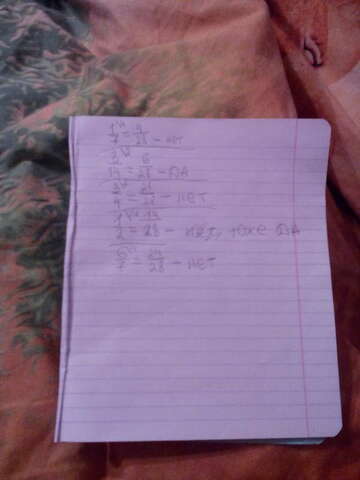 1/7 = 4/28 - нет
3/14 = 6/28 - ДА
3/4 = 21/28 - нет
1/2 = 14/28 - нет, тоже ДА
6/7 = 24/28 - нет